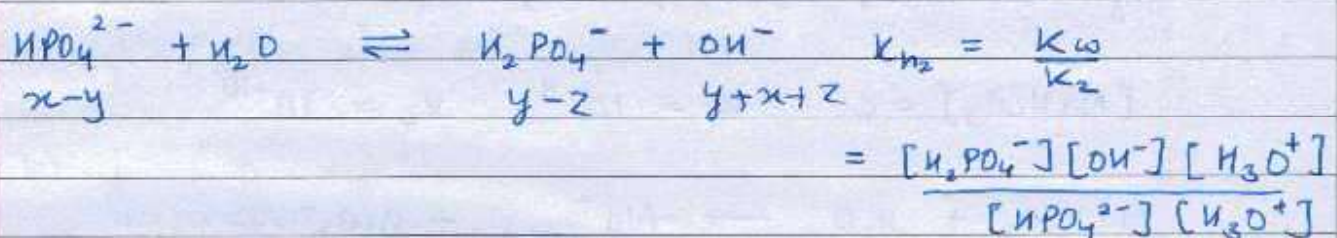 HPO₄²⁻ + H₂O ⇌ H₂PO₄⁻ + OH⁻ Kh₂ = Kw / K₂
x-y y-z y+x+z
= [H₂PO₄⁻][OH⁻][H₃O⁺] / [HPO₄²⁻][H₃O⁺]